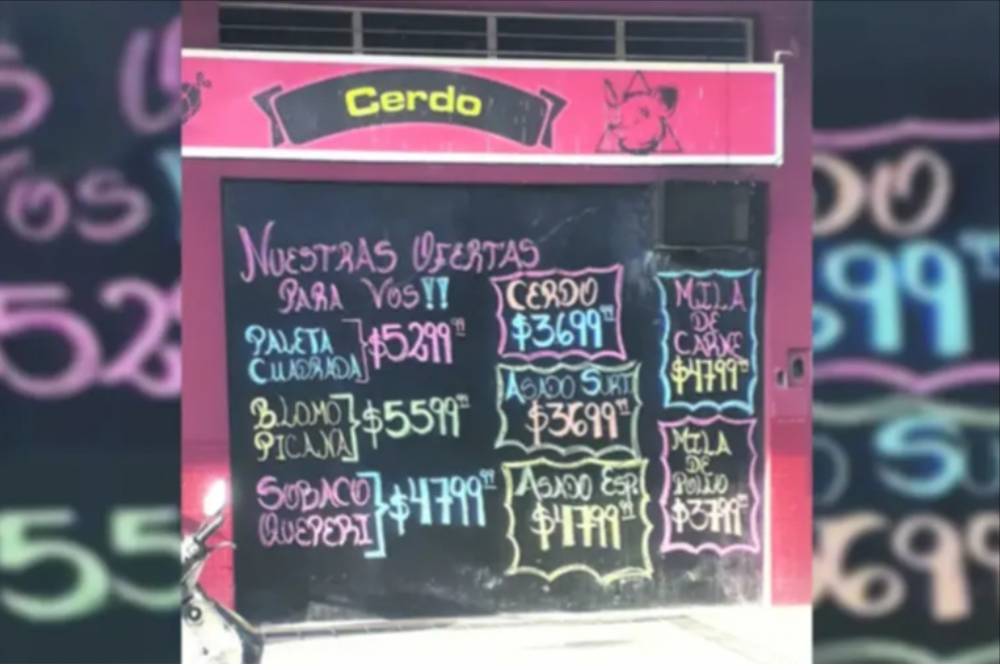 Cerdo
NUESTRAS OFERTAS
PARA VOS!!
PALETA
CUADRADA
$5299⁹⁹
B. LOMO
PICANA
$5599⁹⁹
SOBACO
QUEPERI
$4799⁹⁹
CERDO
$3699⁹⁹
ASADO SURT
$3699⁹⁹
ASADO ESP.
$4799⁹⁹
MILA
DE
CARNE
$4799⁹⁹
MILA
DE
POLLO
$3799⁹⁹